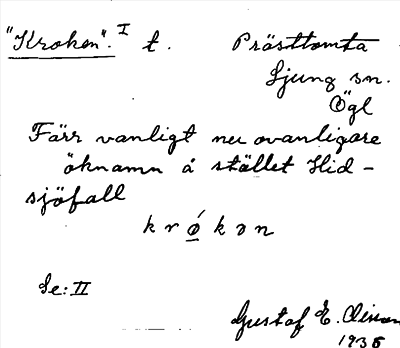 "Kroken". I t. Prästtomta
Ljung sn.
Ögl
Förr vanligt nu ovanligare
öknamn å stället Hid-
sjöfall
k r ó k ə n
Se: II
Gustaf E.
193